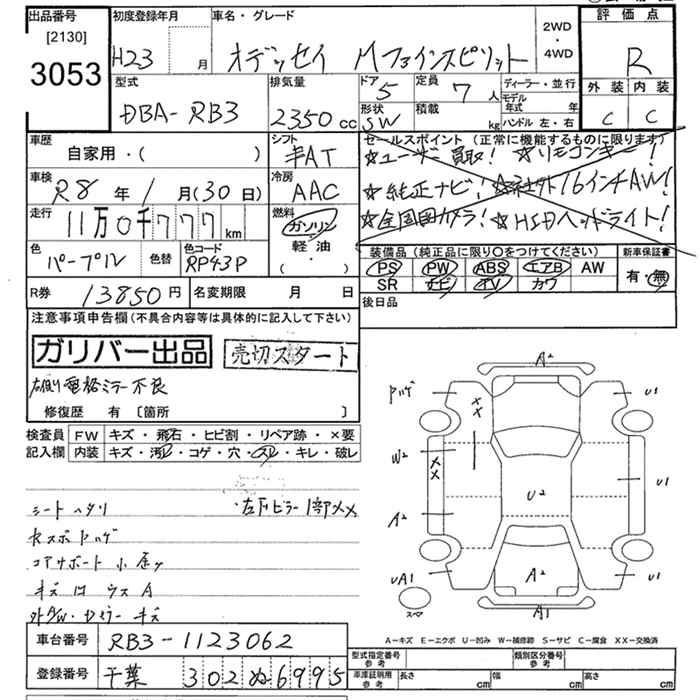 出品番号
[2130]
3053
初度登録年月
H23 月
車名・グレード
オデッセイ Mファインスピリット
2WD
・
4WD
評価点
R
外装 内装
C C
型式
DBA-RB3
排気量
2350 cc
ドア
5
定員
7 人
形状
SW
積載
kg
ディーラー・並行
モデル年式 年
ハンドル 左・右
車歴
自家用・( )
シフト
AT
セールスポイント(正常に機能するものに限ります)
☆ユーザー買取! ☆リモコンキー!
☆純正ナビ! ☆社外16インチAW!
☆全周囲カメラ! ☆HIDヘッドライト!
車検
R8 年 1 月(30日)
冷房
AAC
走行
11万0千777 km
燃料
ガソリン
軽・油
・( )
色
パープル
色替
色コード
RP43P
装備品(純正品に限り○をつけてください)
PS PW ABS エアB AW
SR ナビ TV カワ
新車保証書
有・無
R券 13850円
名変期限 月 日
後日品
注意事項申告欄(不具合内容等は具体的に記入して下さい)
ガリバー出品
売切スタート
右側電格ミラー不良
修復歴 有〔箇所 〕
検査員 FW キズ・飛石・ヒビ割・リペア跡・×要
記入欄 内装 キズ・汚レ・コゲ・穴・スレ・キレ・破レ
シートヘタリ
・右下ピラー1部メメ
コアサポート小歪ミ
A2
U1
W2
XX
XX
U2
U1
A2
UA1
A2
U1
A1
A-キズ E-エクボ U-凹み W-補修跡 S-サビ C-腐食 XX-交換済
車台番号 RB3-1123062
登録番号 千葉 302 ぬ 6995
型式指定番号
参考
類別区分番号
参考
車庫証明用
参考
長さ cm
幅 cm
高さ cm